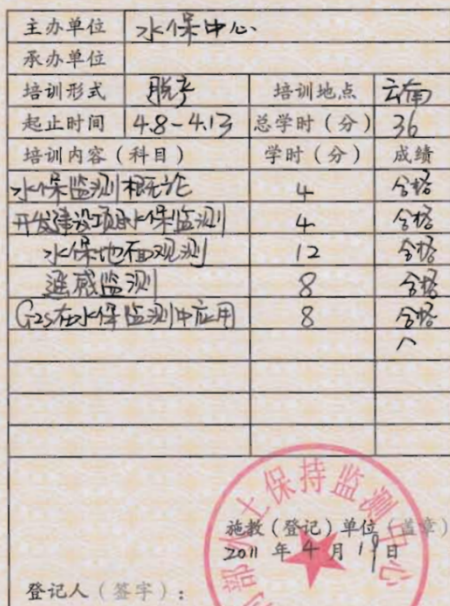 主办单位 水保中心
承办单位
培训形式 脱产 培训地点 云南
起止时间 4.8-4.13 总学时（分） 36
培训内容（科目） 学时（分） 成绩
水保监测概论 4 合格
开发建设项目水保监测 4 合格
水保地面观测 12 合格
遥感监测 8 合格
GIS在水保监测中应用 8 合格
部水土保持监测中心
施教（登记）单位（盖章）
2011 年 4 月 19 日
登记人（签字）：